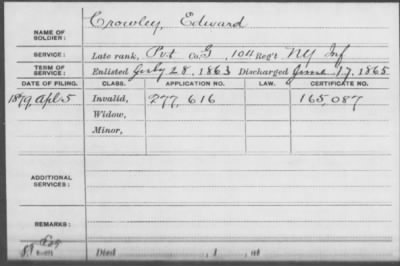 Crowley, Edward
NAME OF SOLDIER:
SERVICE: Late rank, Pvt Co. G, 104 Reg't NY Inf
TERM OF SERVICE: Enlisted July 28, 1863 Discharged June 17, 1865
DATE OF FILING. CLASS. APPLICATION NO. LAW. CERTIFICATE NO.
1879, Apl. 5 Invalid, 277,616 165,087
Widow,
Minor,
ADDITIONAL SERVICES:
REMARKS:
Died , 1 , at